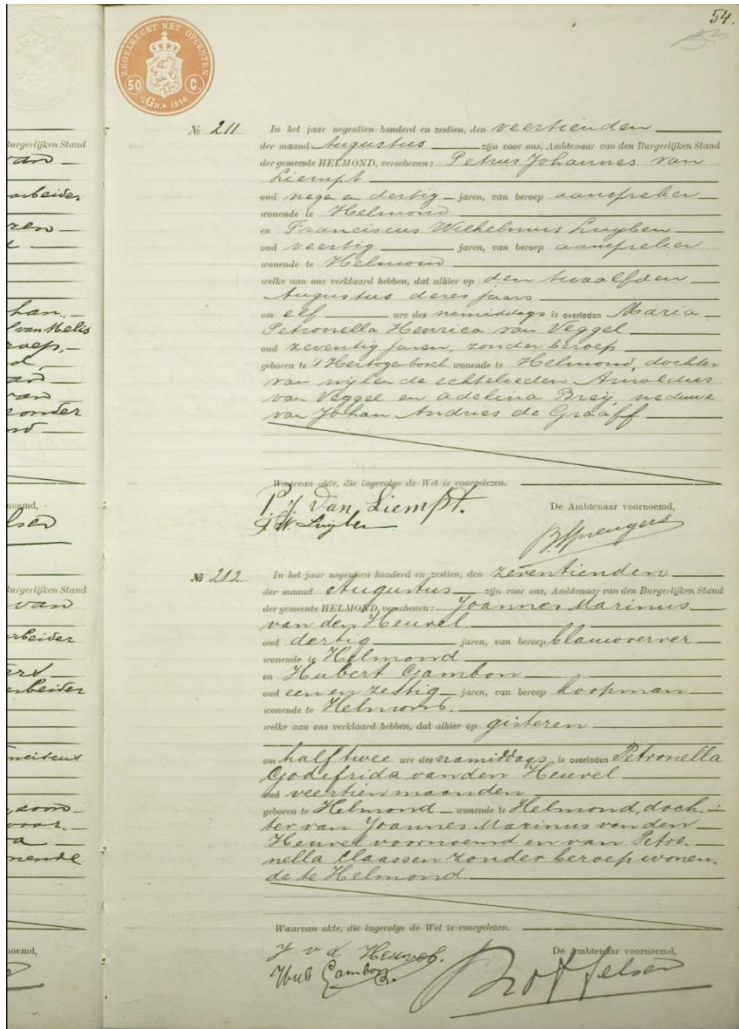 54.
ZEGELRECHT MET OPCENTEN
50 C.
Gr. * 1916
№ 211
In het jaar negentien honderd en zestien, den veertienden
der maand Augustus zijn voor ons, Ambtenaar van den Burgerlijken Stand
der gemeente HELMOND, verschenen: Petrus Johannes van
Liempt
oud negen dertig jaren, van beroep aanspreker
wonende te Helmond
en Franciscus Wilhelmus Luijben
oud veertig jaren, van beroep aanspreker
wonende te Helmond
welke aan ons verklaard hebben, dat alhier op den twaalfden
Augustus dezes jaars
om elf ure des namiddags is overleden Maria
Petronella Henrica van Veggel
oud zeventig jaren, zonder beroep
geboren te 's Hertogenbosch wonende te Helmond, dochter
van wijlen de echtelieden Arnoldus
van Veggel en Adelina Breij, weduwe
van Johan Andries de Graaff
Waarvan akte, die ingevolge de Wet is voorgelezen.
P. J. Van Liempt.
F. W. Luijben
De Ambtenaar voornoemd,
№ 212
In het jaar negentien honderd en zestien, den zeventienden
der maand Augustus zijn voor ons, Ambtenaar van den Burgerlijken Stand
der gemeente HELMOND, verschenen: Joannes Marinus
van den Heuvel
oud dertig jaren, van beroep blauwverver
wonende te Helmond
en Hubert Gambon
oud een en zestig jaren, van beroep koopman
wonende te Helmond.
welke aan ons verklaard hebben, dat alhier op gisteren
om half twee ure des namiddags is overleden Petronella
Godefrida van den Heuvel
oud veertien maanden
geboren te Helmond wonende te Helmond, doch-
ter van Joannes Marinus van den
Heuvel voornoemd en van Petro-
nella Claassen zonder beroep wonen-
de te Helmond
Waarvan akte, die ingevolge de Wet is voorgelezen.
J v d Heuvel.
Hub Gambon
De Ambtenaar voornoemd,